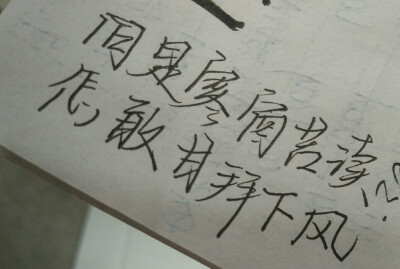 同是寒窗苦读
怎敢甘拜下风